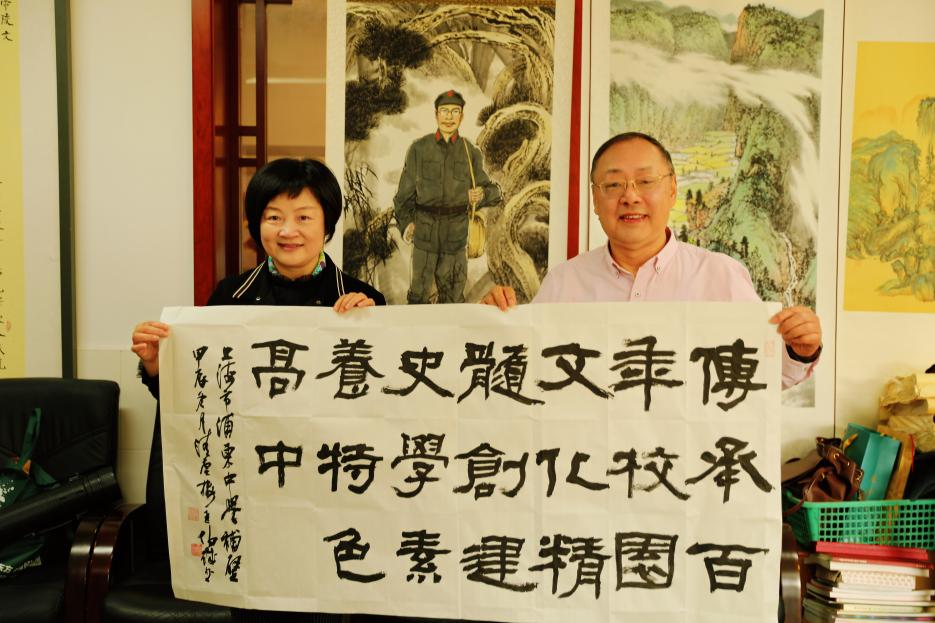 傳承百
年校園
文化精
髓創建
史學素
養特色
高中
上海市浦東中學補壁
甲辰冬月